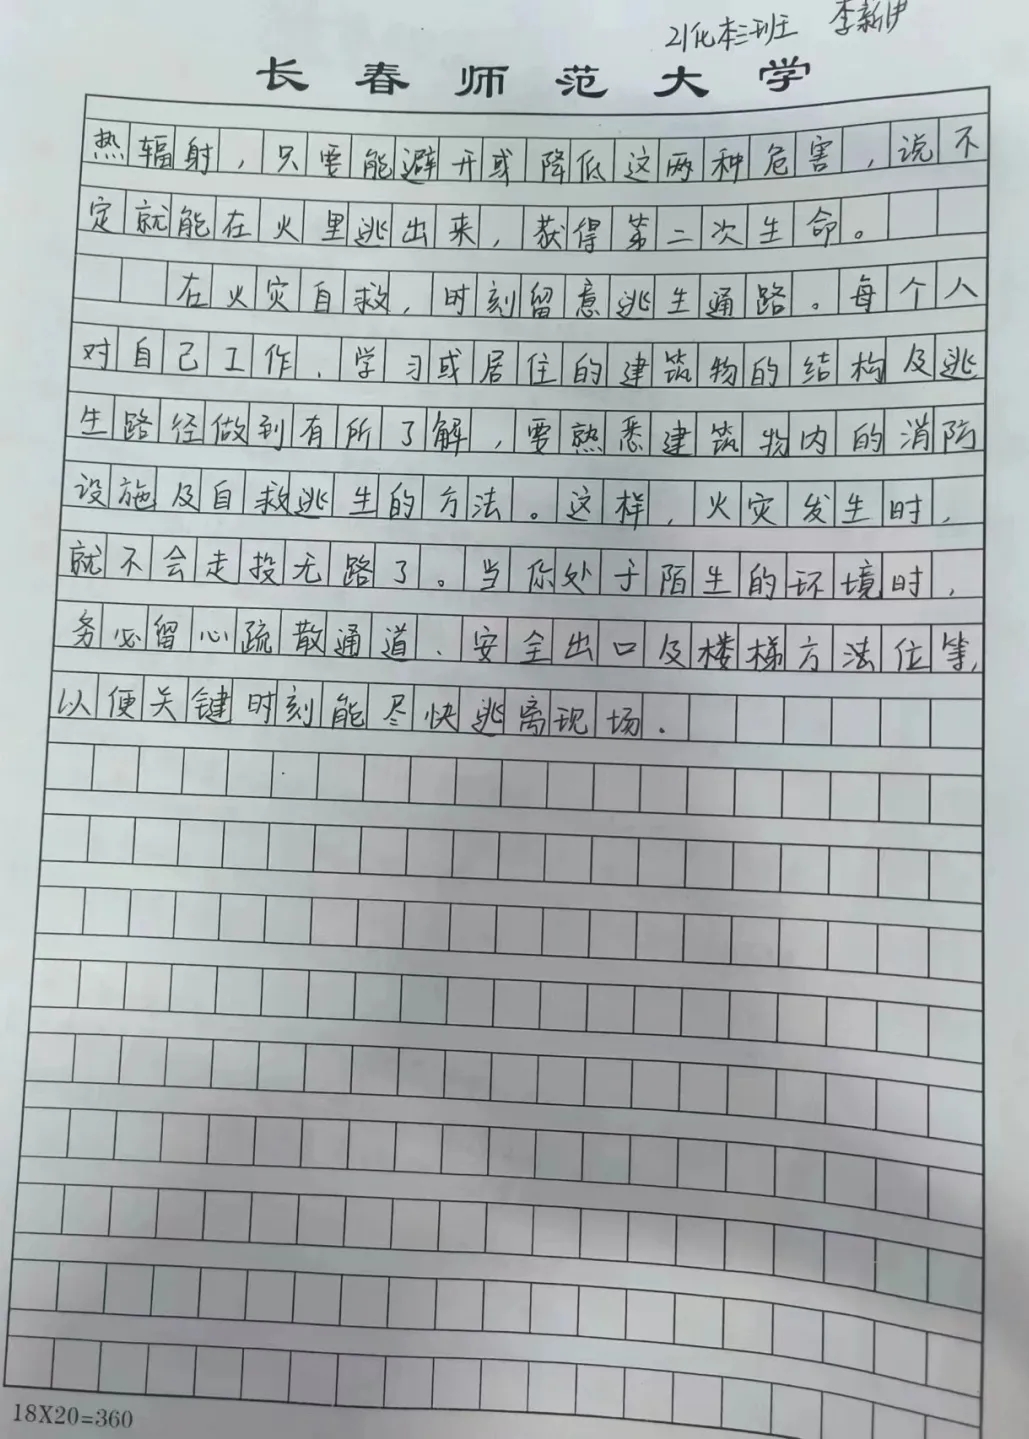 21化本三班 李新伊
长春师范大学
热辐射，只要能避开或降低这两种危害，说不
定就能在火里逃出来，获得第二次生命。
在火灾自救，时刻留意逃生通路。每个人
对自己工作、学习或居住的建筑物的结构及逃
生路径做到有所了解，要熟悉建筑物内的消防
设施及自救逃生的方法。这样，火灾发生时，
就不会走投无路了。当你处于陌生的环境时，
务必留心疏散通道、安全出口及楼梯方法位等，
以便关键时刻能尽快逃离现场．
18X20=360